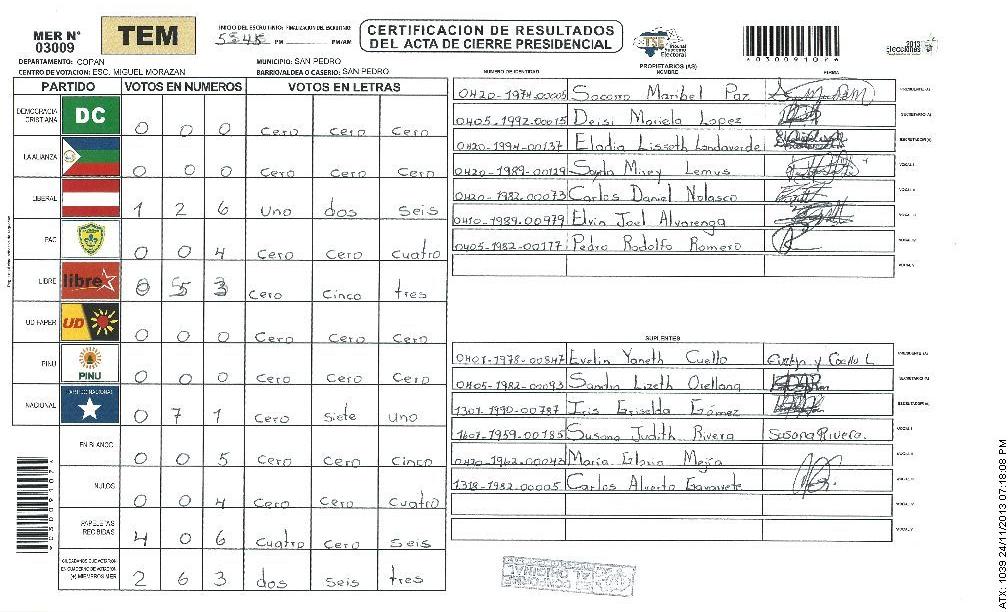 MER N° 03009
TEM
INICIO DEL ESCRUTINIO: FINALIZACION DEL ESCRUTINIO:
PM PM/AM
CERTIFICACION DE RESULTADOS
DEL ACTA DE CIERRE PRESIDENCIAL
TSE Tribunal Supremo Electoral
030091026
2013 Elecciones
DEPARTAMENTO: COPAN
MUNICIPIO: SAN PEDRO
CENTRO DE VOTACION: ESC. MIGUEL MORAZAN
BARRIO/ALDEA O CASERIO: SAN PEDRO
PARTIDO VOTOS EN NUMEROS VOTOS EN LETRAS
DEMOCRACIA CRISTIANA DC 0 0 0 Cero cero Cero
LA ALIANZA 0 0 0 Cero Cero Cero
LIBERAL 1 2 6 Uno dos seis
PAC 0 0 4 Cero Cero Cuatro
LIBRE libre 0 5 3 Cero Cinco tres
UD FAPER UD 0 0 0 Cero Cero Cero
PINU PINU 0 0 0 Cero Cero Cero
NACIONAL PARTIDO NACIONAL 0 7 1 Cero Siete Uno
EN BLANCO 0 0 5 Cero Cero Cinco
NULOS 0 0 4 Cero Cero Cuatro
PAPELETAS RECIBIDAS 4 0 6 Cuatro Cero Seis
CIUDADANOS QUE VOTARON EN CUADERNO DE VOTACION (+) MIEMBROS MER 2 6 3 dos seis tres
PROPIETARIOS (AS)
NUMERO DE IDENTIDAD NOMBRE FIRMA
0420-1974-00005 Socorro Maribel Paz PRESIDENTE (A)
0405-1992-00015 Deisi Mariela Lopez SECRETARIO (A)
0420-1994-00137 Eladia Lisseth Landaverde ESCRUTADOR (A)
0420-1989-00129 Mirey Lemus VOCAL I
0420-1982-00073 Carlos Daniel Nolasco VOCAL II
0410-1989-00979 Elvin Joel Alvarenga VOCAL III
0405-1982-00177 Pedro Rodolfo Romero VOCAL IV
VOCAL V
SUPLENTES
0401-1978-00847 Evelin Yaneth Cuello PRESIDENTE (A)
0405-1982-00093 Sandra Lizeth Orellana SECRETARIO (A)
1301-1990-00787 Iris Griselda Gómez ESCRUTADOR (A)
1607-1959-00185 Susana Judith Rivera Susana Rivera. VOCAL I
0420-1962-00043 María Elena Mejía VOCAL II
1318-1982-00005 Carlos Alverto VOCAL III
VOCAL IV
VOCAL V
030091026
ATX: 1039 24/11/2013 07:18:08 PM